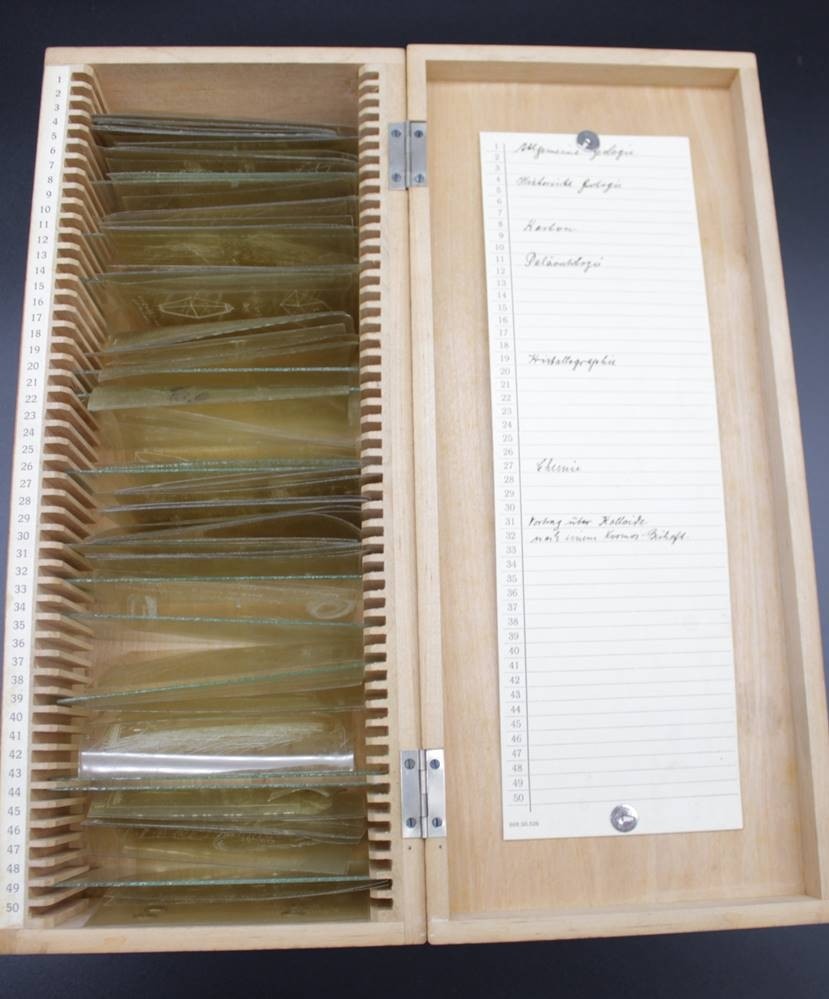 1
2
3
4
5
6
7
8
9
10
11
12
13
14
15
16
17
18
19
20
21
22
23
24
25
26
27
28
29
30
31
32
33
34
35
36
37
38
39
40
41
42
43
44
45
46
47
48
49
50
1 Allgemeine Geologie
2
3
4 Historische Geologie
5
6
7
8 Karbon
9
10
11 Paläontologie
12
13
14
15
16
17
18
19 Kristallographie
20
21
22
23
24
25
26
27 Chemie
28
29
30
31 Vortrag über Kolloide
32 nach einem Kosmos
33
34
35
36
37
38
39
40
41
42
43
44
45
46
47
48
49
50